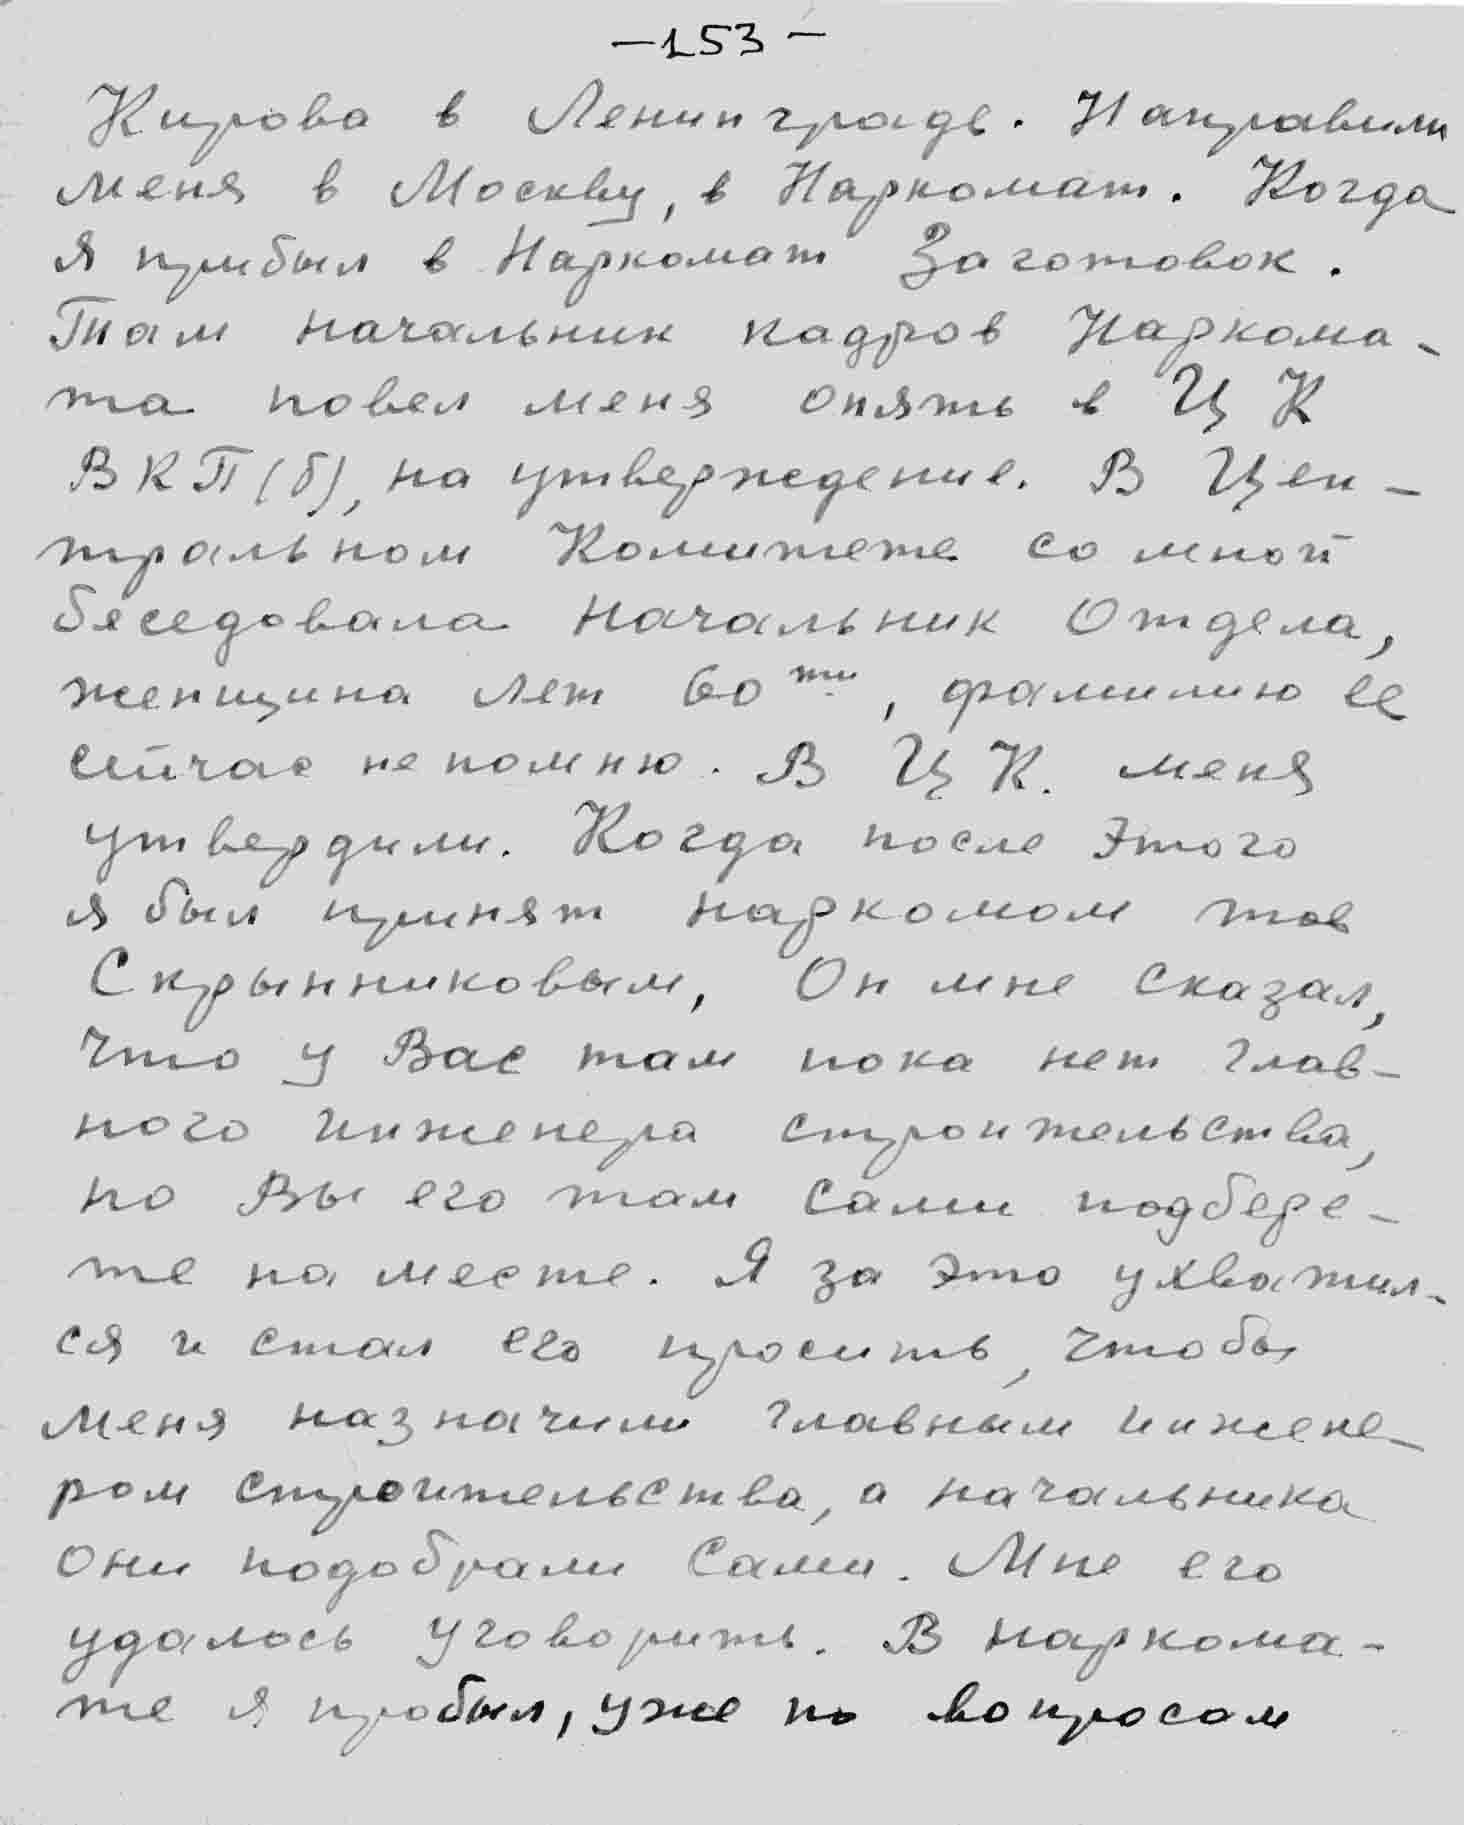 -153-
Кирова в Ленинграде. Направили
меня в Москву, в Наркомат. Когда
я прибыл в Наркомат Заготовок.
Там начальник кадров Наркома-
та повел меня опять в ЦК
ВКП(б), на утверждение. В Цен-
тральном Комитете со мной
беседовала начальник Отдела,
женщина лет 60ти, фамилию ее
сейчас не помню. В ЦК. меня
утвердили. Когда после этого
я был принят наркомом тов
Скрынниковым, Он мне сказал,
что у Вас там пока нет глав-
ного инженера строительства,
но Вы его там сами подбере-
те на месте. Я за это ухватил-
ся и стал его просить, чтобы
меня назначили главным инжене-
ром строительства, а начальника
они подобрали сами. Мне его
удалось уговорить. В наркома-
те я пробыл, уже по вопросам